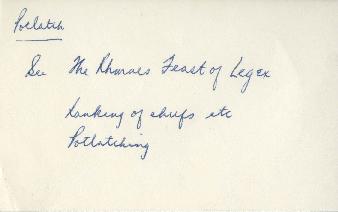 Potlatch
See The Rhonas Feast of Legex
Ranking of chiefs etc
Potlatching